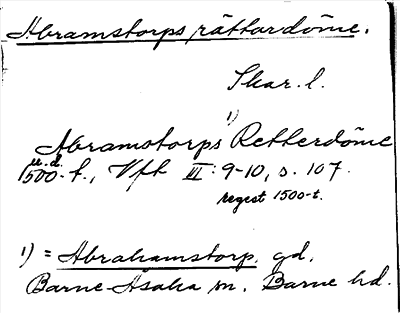 Abramstorps rättardöme.
Skar. l.
1)
Abramstorps Retterdöme
u.d.
1500-t., Vft III: 9-10, s. 107.
regest 1500-t.
1) = Abrahamstorp. gd.
Barne-Åsaka sn. Barne hd.